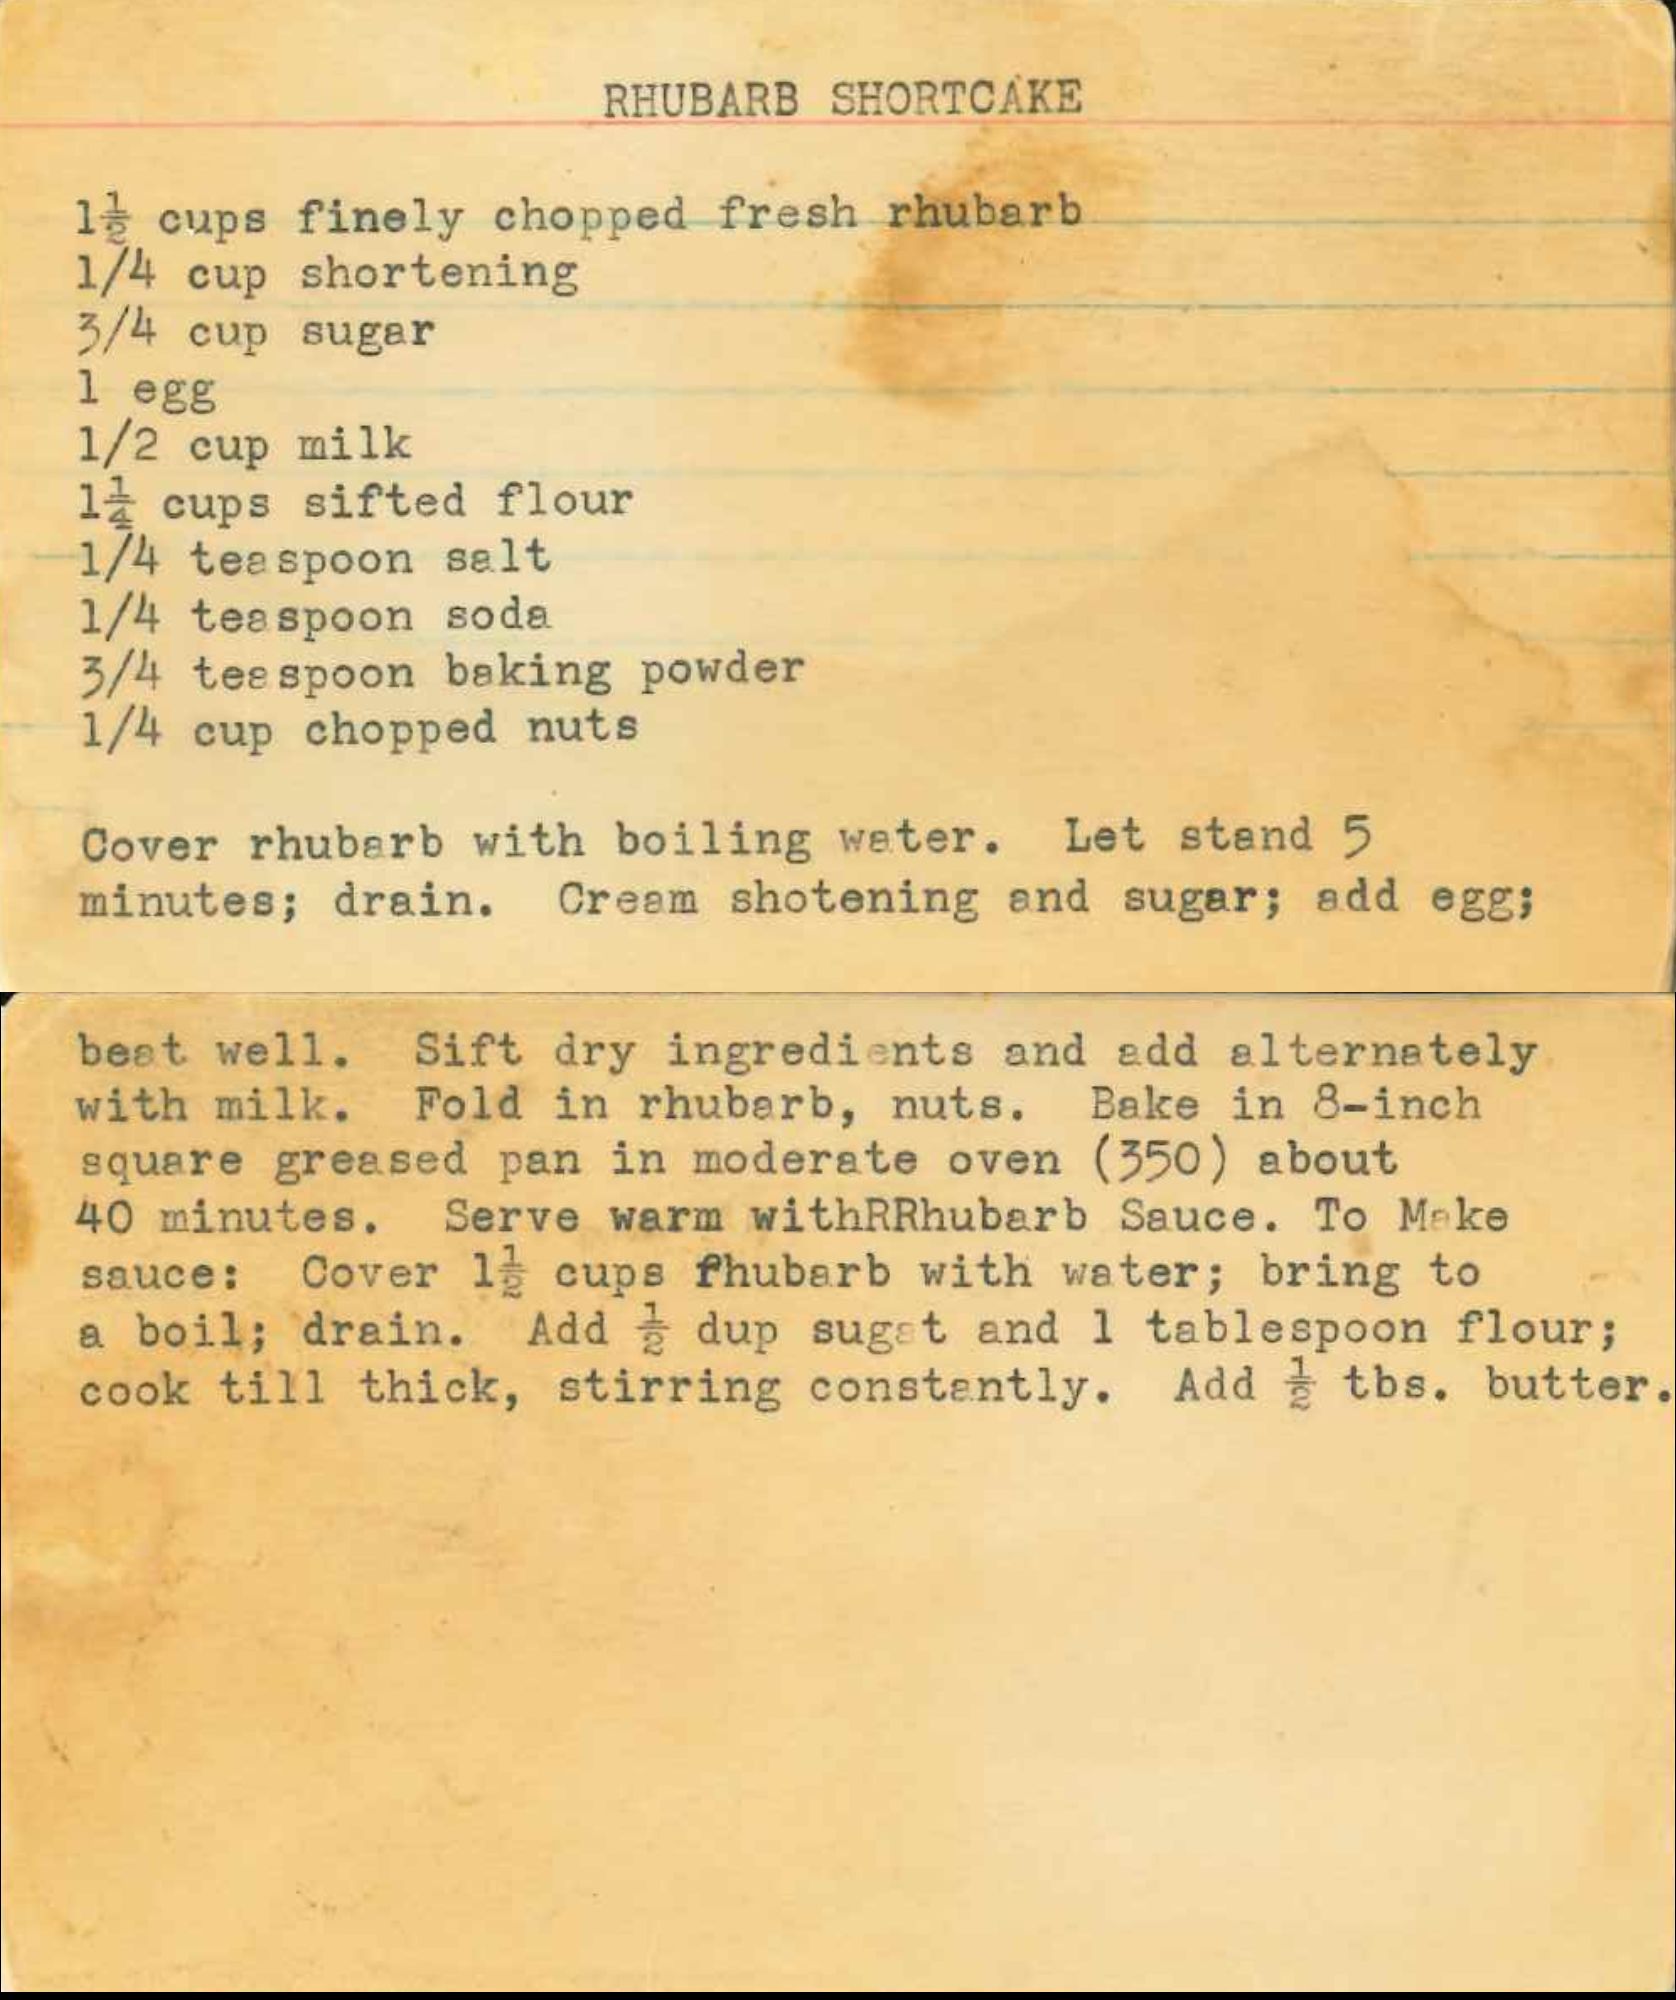 RHUBARB SHORTCAKE
1½ cups finely chopped fresh rhubarb
1/4 cup shortening
3/4 cup sugar
1 egg
1/2 cup milk
1¼ cups sifted flour
1/4 teaspoon salt
1/4 teaspoon soda
3/4 teaspoon baking powder
1/4 cup chopped nuts
Cover rhubarb with boiling water. Let stand 5
minutes; drain. Cream shotening and sugar; add egg;
beat well. Sift dry ingredients and add alternately
with milk. Fold in rhubarb, nuts. Bake in 8-inch
square greased pan in moderate oven (350) about
40 minutes. Serve warm withRRhubarb Sauce. To Make
sauce: Cover 1½ cups rhubarb with water; bring to
a boil; drain. Add ½ dup sugat and 1 tablespoon flour;
cook till thick, stirring constantly. Add ½ tbs. butter.